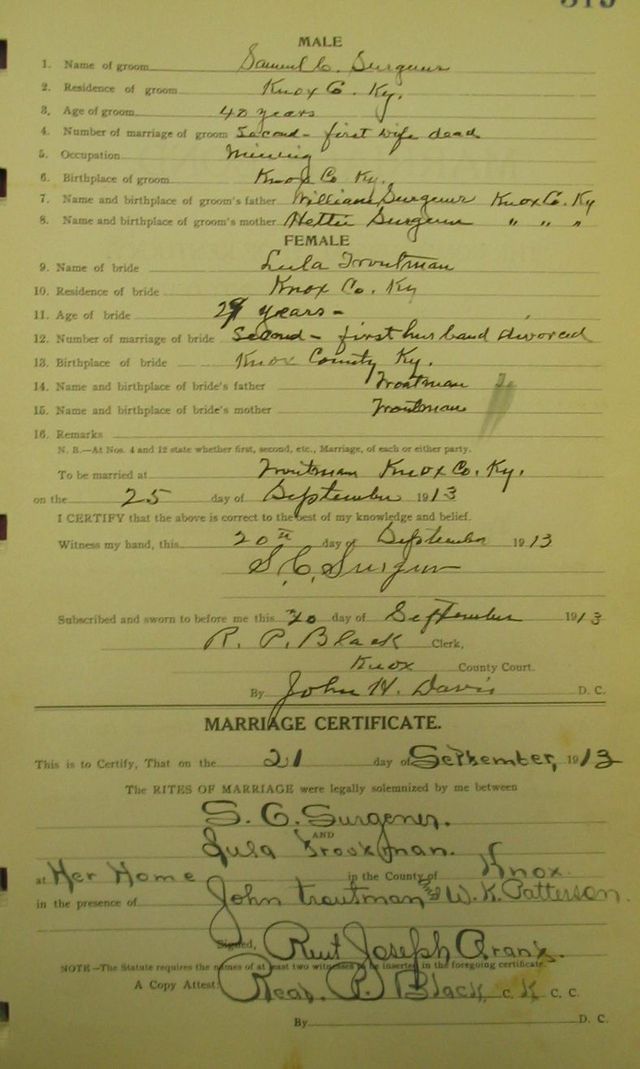 MALE
1. Name of groom Samuel C. Surgener
2. Residence of groom Knox Co. Ky.
3. Age of groom 40 years
4. Number of marriage of groom Second - first wife dead
5. Occupation Mining
6. Birthplace of groom Knox Co Ky.
7. Name and birthplace of groom's father William Surgener Knox Co. Ky
8. Name and birthplace of groom's mother Hettie Surgener " " "
FEMALE
9. Name of bride Lula Troutman
10. Residence of bride Knox Co. Ky
11. Age of bride years -
12. Number of marriage of bride Second - first husband divorced
13. Birthplace of bride Knox County Ky.
14. Name and birthplace of bride's father Troutman
15. Name and birthplace of bride's mother Troutman
16. Remarks
N. B.—At Nos. 4 and 12 state whether first, second, etc., Marriage, of each or either party.
To be married at Troutman Knox Co. Ky.
on the 25 day of September 1913
I CERTIFY that the above is correct to the best of my knowledge and belief.
Witness my hand, this 20th day of September 1913
S. C. Surgener
Subscribed and sworn to before me this 20 day of September 1913
R. P. Black Clerk,
Knox County Court.
By John H. Davis D. C.
MARRIAGE CERTIFICATE.
This is to Certify, That on the 21 day of September, 1913
The RITES OF MARRIAGE were legally solemnized by me between
S. C. Surgener.
AND
Lula Trootman.
at Her Home in the County of Knox
in the presence of John Trautman and W. K. Patterson.
Signed, Joseph
NOTE—The Statute requires the names of at least two witnesses to be inserted in the foregoing certificate.
A Copy Attest: P. Black, C. K C. C.
By D. C.